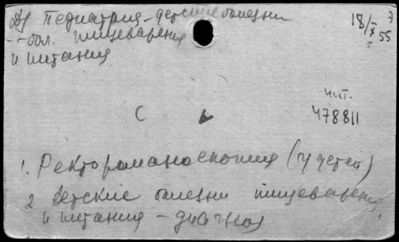 Педиатрия - детские болезни
-- бол. пищеварения
и питания
18/X 55
С
чит.
478811
1. Ректороманоскопия (у детей)
2 Детские болезни пищеварения
и питания - диагноз